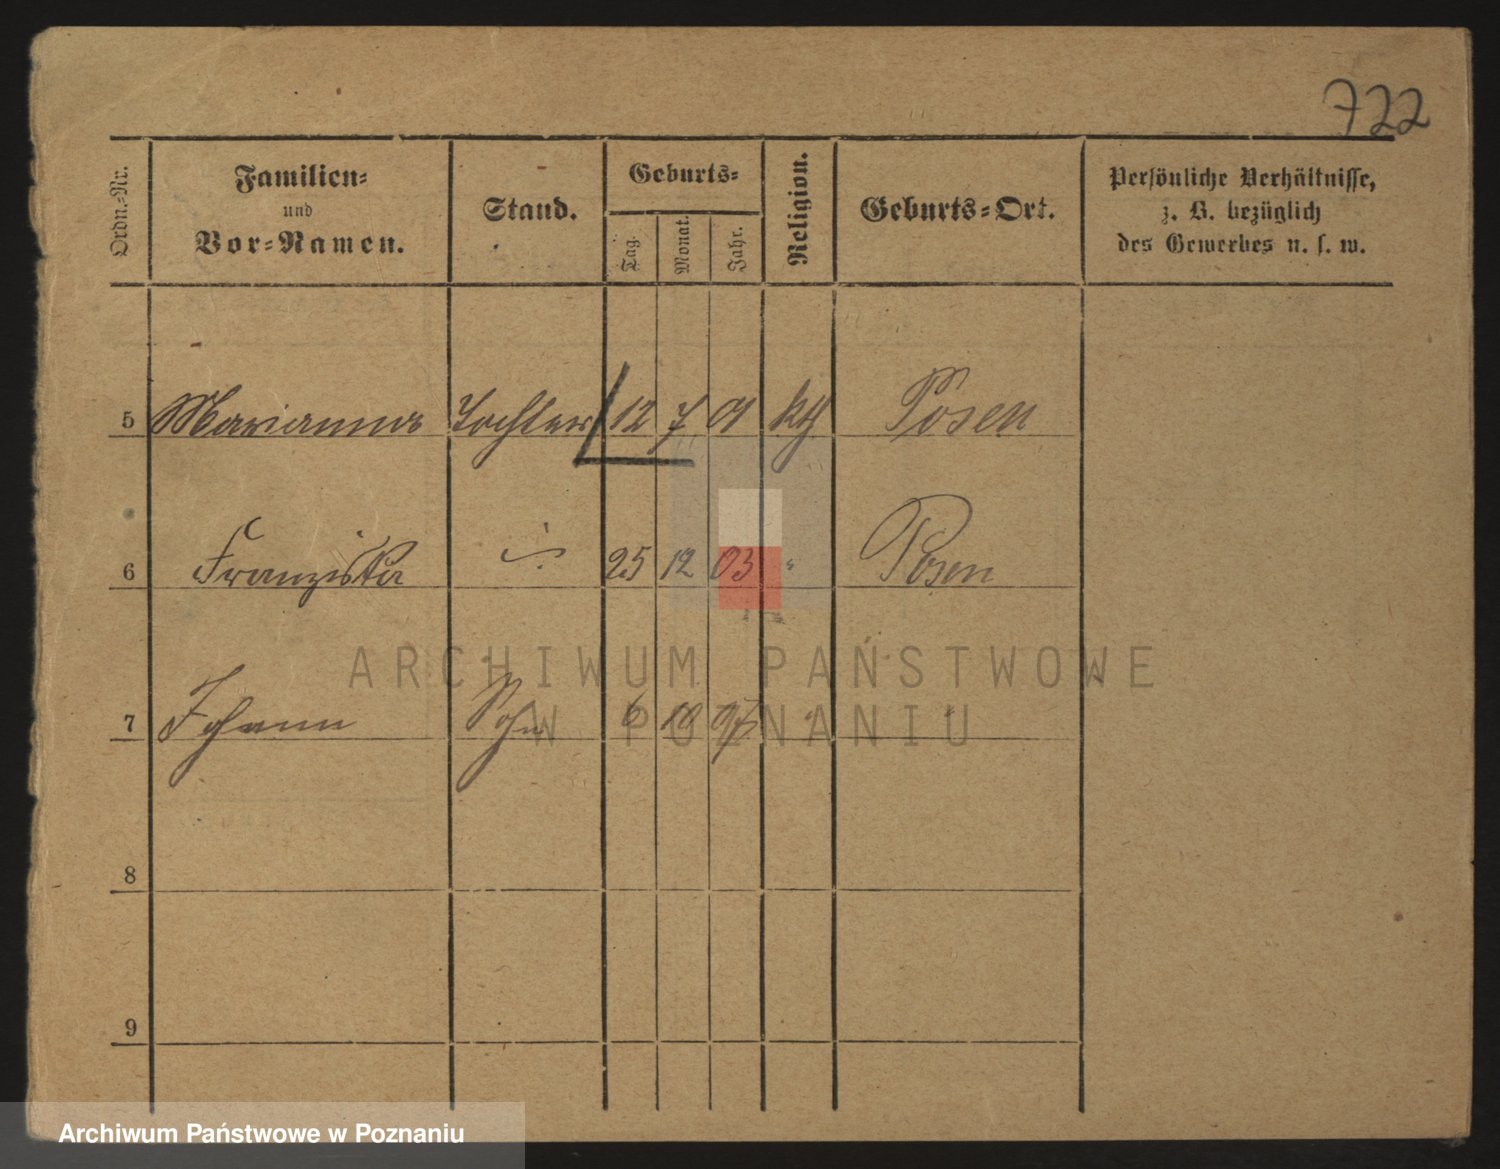 722
Ordn.-Nr.
Familien-
und
Vor-Namen.
Stand.
Geburts-
Tag.
Monat.
Jahr.
Religion.
Geburts-Ort.
Persönliche Verhältnisse,
z. B. bezüglich
des Gewerbes u. s. w.
5 Marianna Tochter 12 7 01 kth Posen
6 Franziska " 25 12 03 " Posen
7 Johann Sohn 6 10 97 " "
8
9
ARCHIWUM PAŃSTWOWE
W POZNANIU
Archiwum Państwowe w Poznaniu